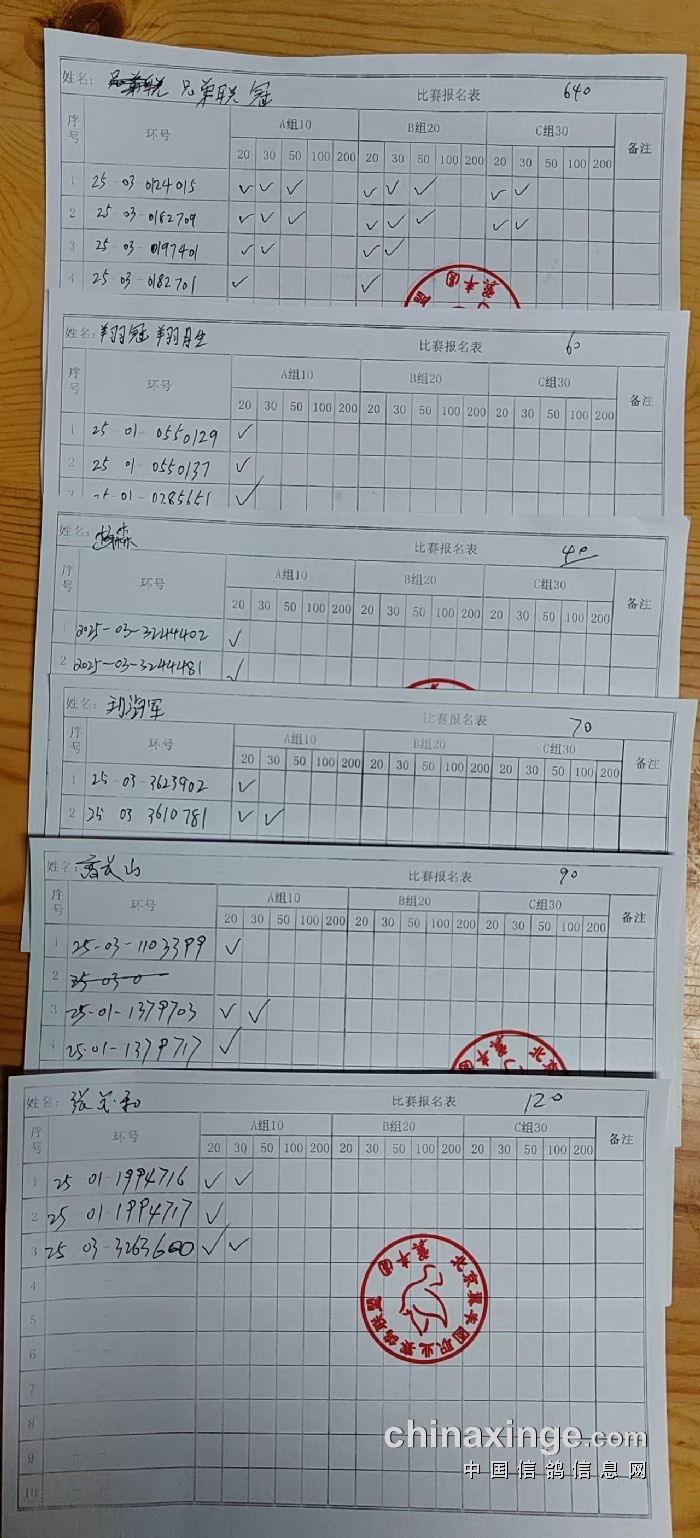 姓名: 兄弟联冠 比赛报名表 640
序号 环号 A组10 B组20 C组30 备注
20 30 50 100 200 20 30 50 100 200 20 30 50 100 200
1 25-03-0124015 ✓ ✓ ✓ ✓ ✓ ✓ ✓ ✓
2 25-03-0182709 ✓ ✓ ✓ ✓ ✓ ✓ ✓ ✓
3 25-03-0197401 ✓ ✓ ✓ ✓
4 25-03-0182701 ✓ ✓
姓名: 翔冠翔月生 比赛报名表 60
序号 环号 A组10 B组20 C组30 备注
20 30 50 100 200 20 30 50 100 200 20 30 50 100 200
1 25 01-0550129 ✓
2 25 01 0550137 ✓
3 25-01-0285651 ✓
姓名: 森 比赛报名表 40
序号 环号 A组10 B组20 C组30 备注
20 30 50 100 200 20 30 50 100 200 20 30 50 100 200
1 2025-03-3244402 ✓
2 2025-03-3244481 ✓
姓名: 海军 比赛报名表 70
序号 环号 A组10 B组20 C组30 备注
20 30 50 100 200 20 30 50 100 200 20 30 50 100 200
1 25-03-3623902 ✓
2 25 03 3610781 ✓ ✓
姓名: 山 比赛报名表 90
序号 环号 A组10 B组20 C组30 备注
20 30 50 100 200 20 30 50 100 200 20 30 50 100 200
1 25-03-1103399 ✓
2 25-03-0
3 25-01-1379703 ✓ ✓
4 25-01-1379717 ✓
姓名: 张 和 比赛报名表 120
序号 环号 A组10 B组20 C组30 备注
20 30 50 100 200 20 30 50 100 200 20 30 50 100 200
1 25 01-1994716 ✓ ✓
2 25 01-1994717 ✓
3 25-03-3263600 ✓ ✓
4
5
6
7
8
9
10
chinaxinge.com
中国信鸽信息网